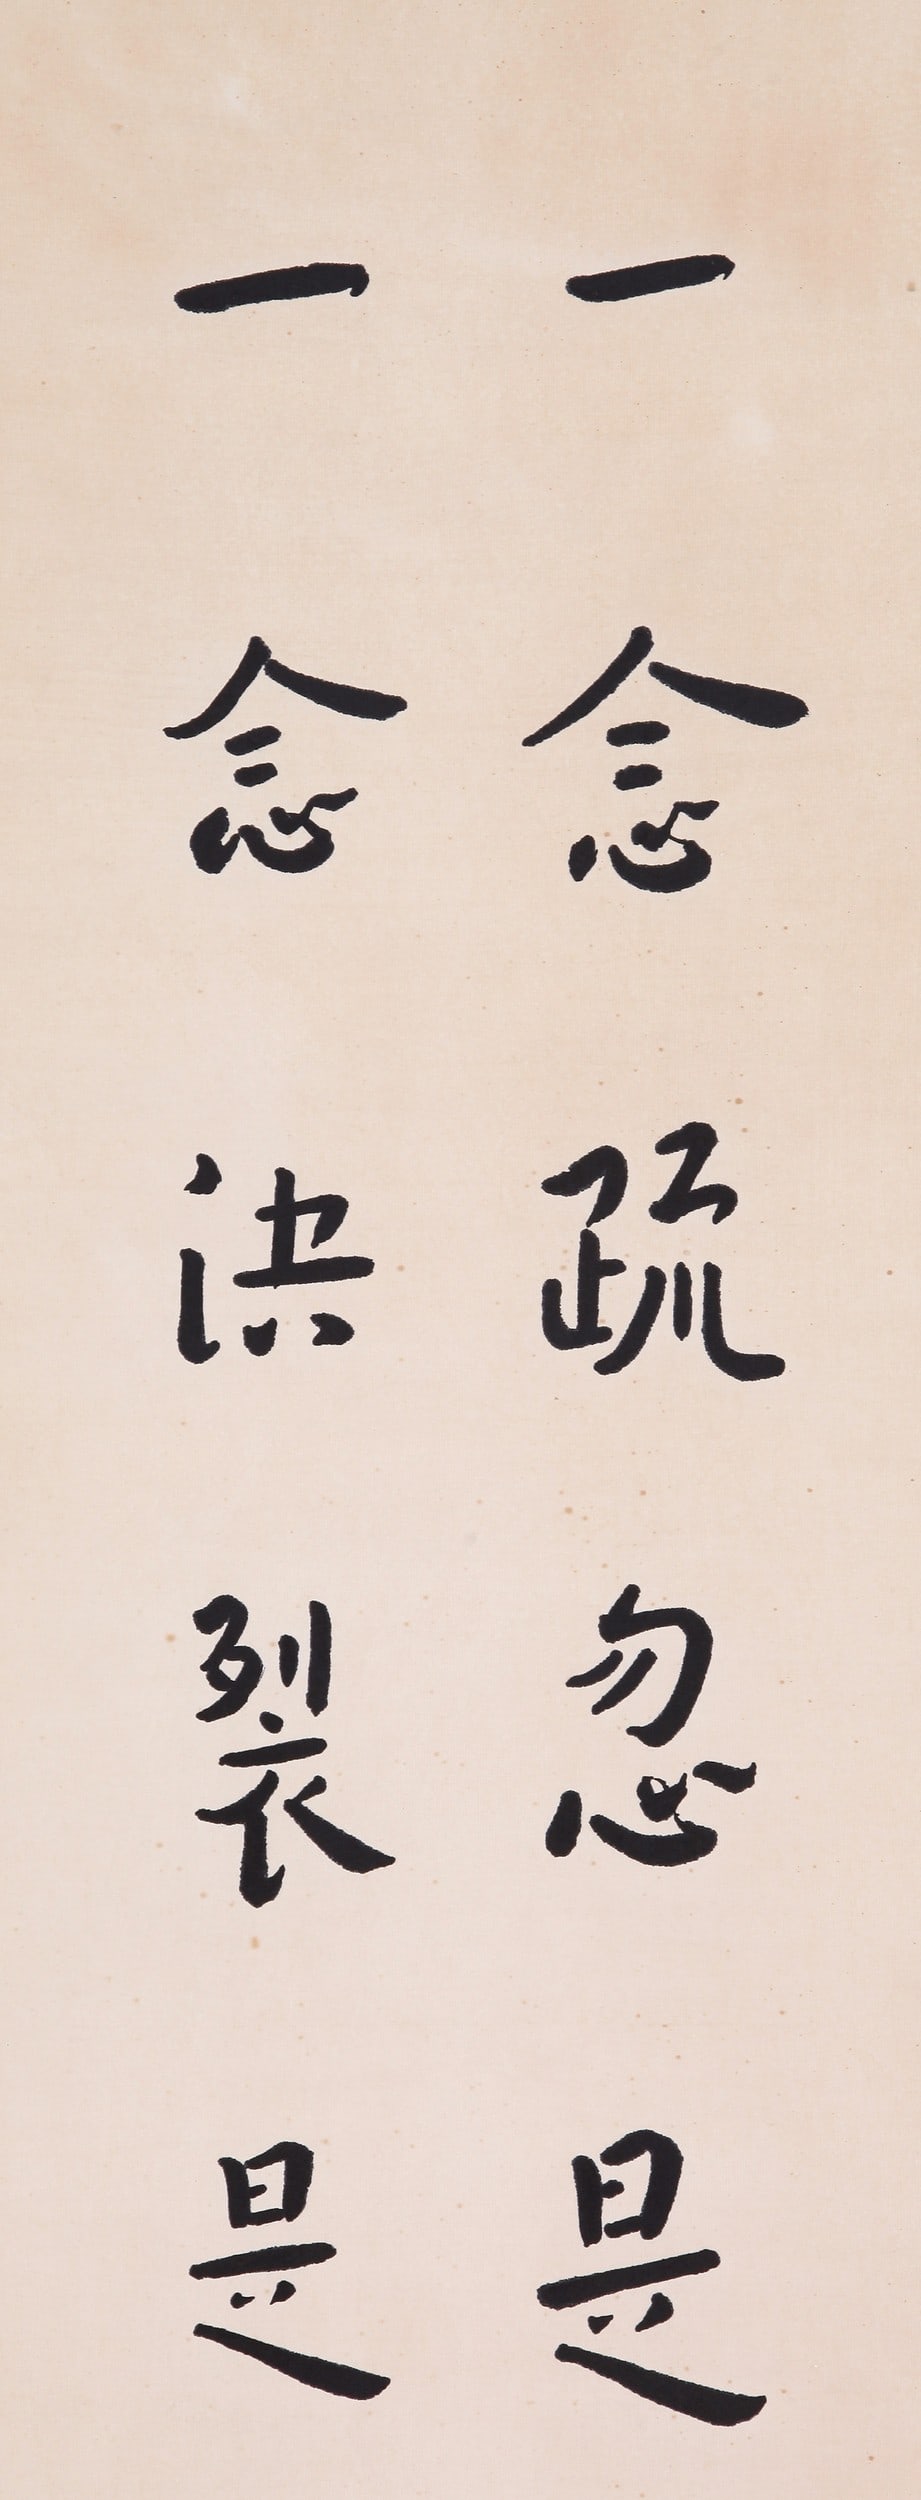 一念疏忽是
一念决裂是